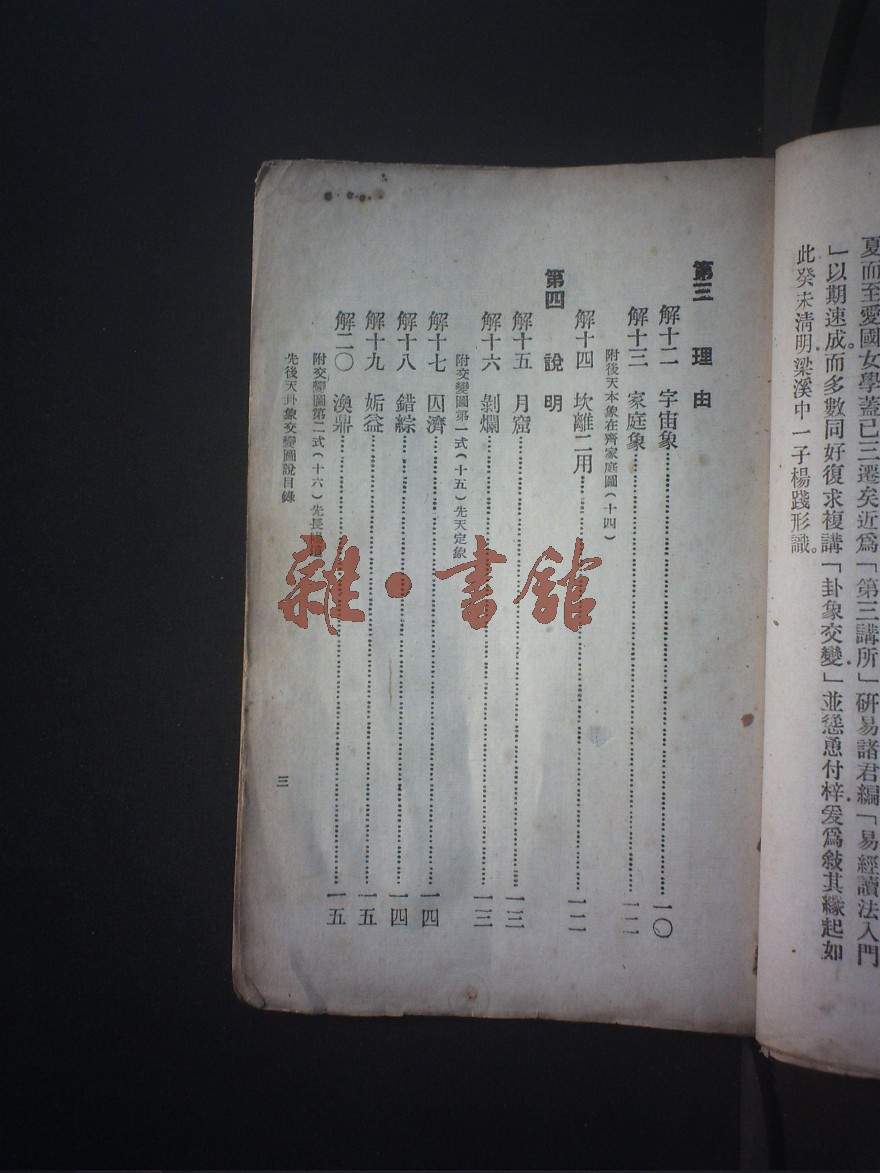 夏而至愛國女學蓋已三遷矣近爲「第三講所」硏易諸君編「易經讀法入門
」以期速成而多數同好復求複講「卦象交變」並慫恿付梓爰爲敍其緣起如
此癸未淸明梁溪中一子楊踐形識。
第三　理由
解十二　宇宙象……一〇
解十三　家庭象……一二
附後天本象在齊家庭圖(十四)
解十四　坎離二用……一二
第四　說明
解十五　月窟……一三
附交變圖第一式(十五)先天定象
解十六　剝爛……一三
解十七　囚濟……一四
解十八　錯綜……一四
解十九　姤益……一五
解二〇　渙鼎……一五
附交變圖第二式(十六)先長
先後天卦象交變圖說目錄
三
雜·書館